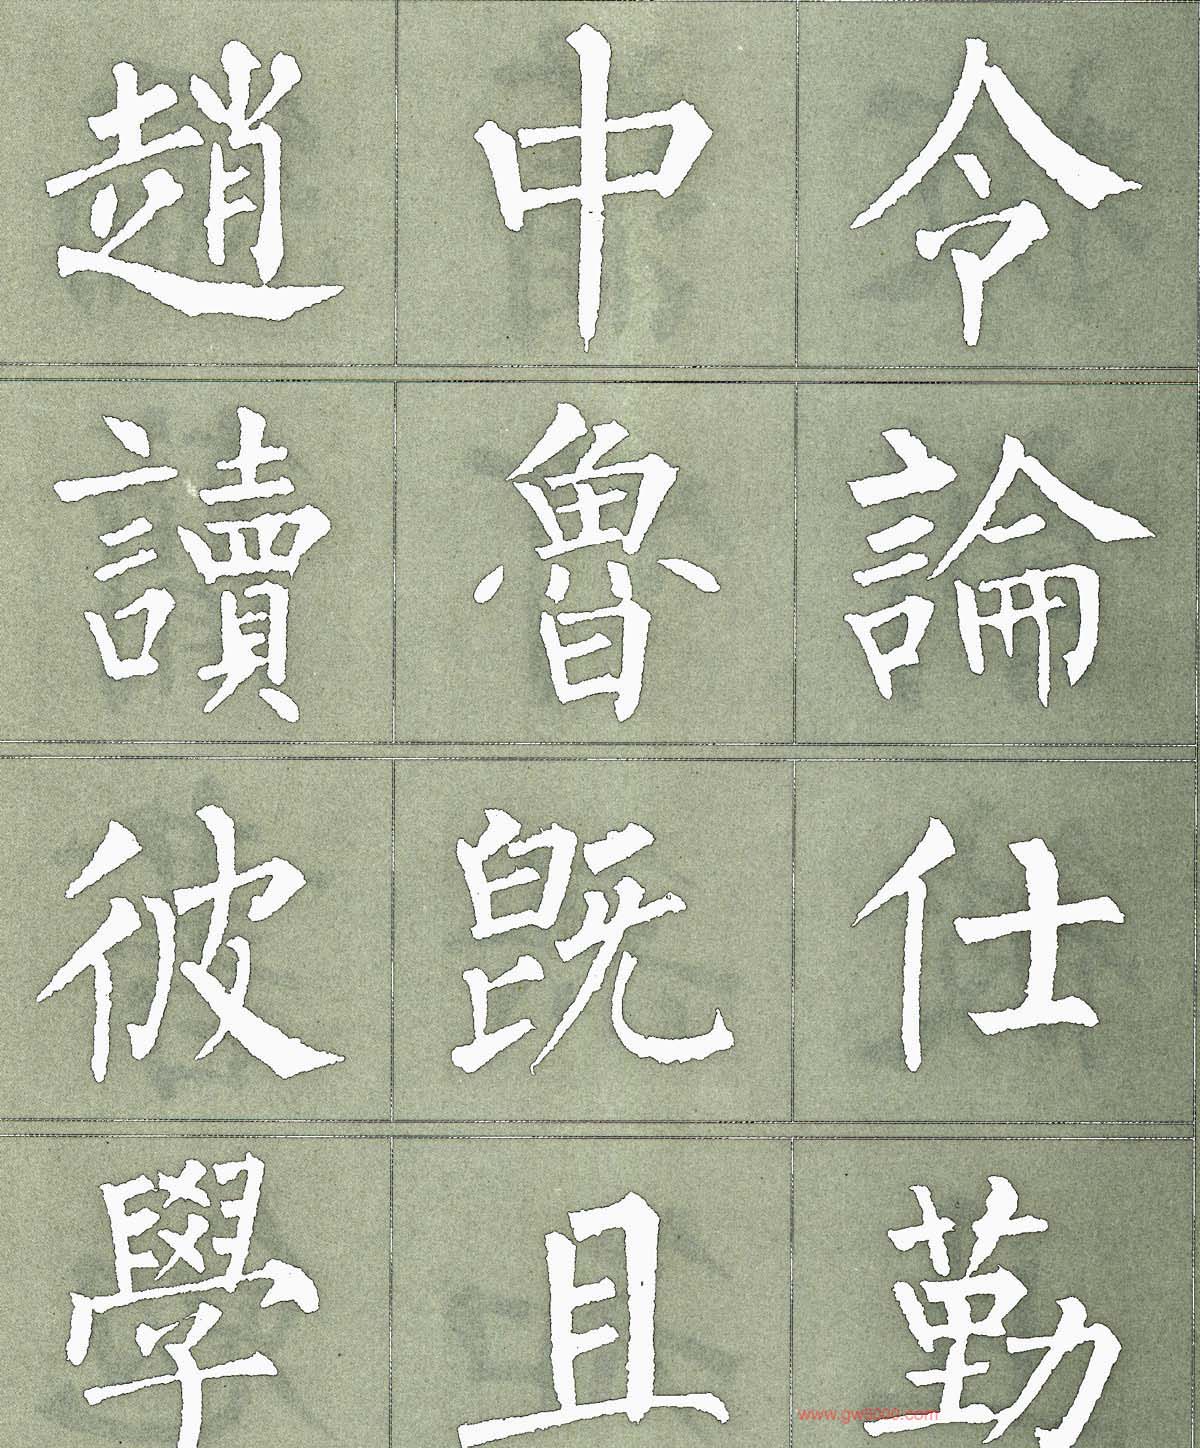 趙中令
讀魯論
彼既仕
學且勤